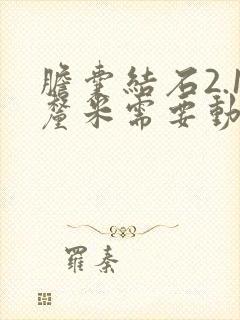 膽囊結石2.1
釐米需要動
羅秦